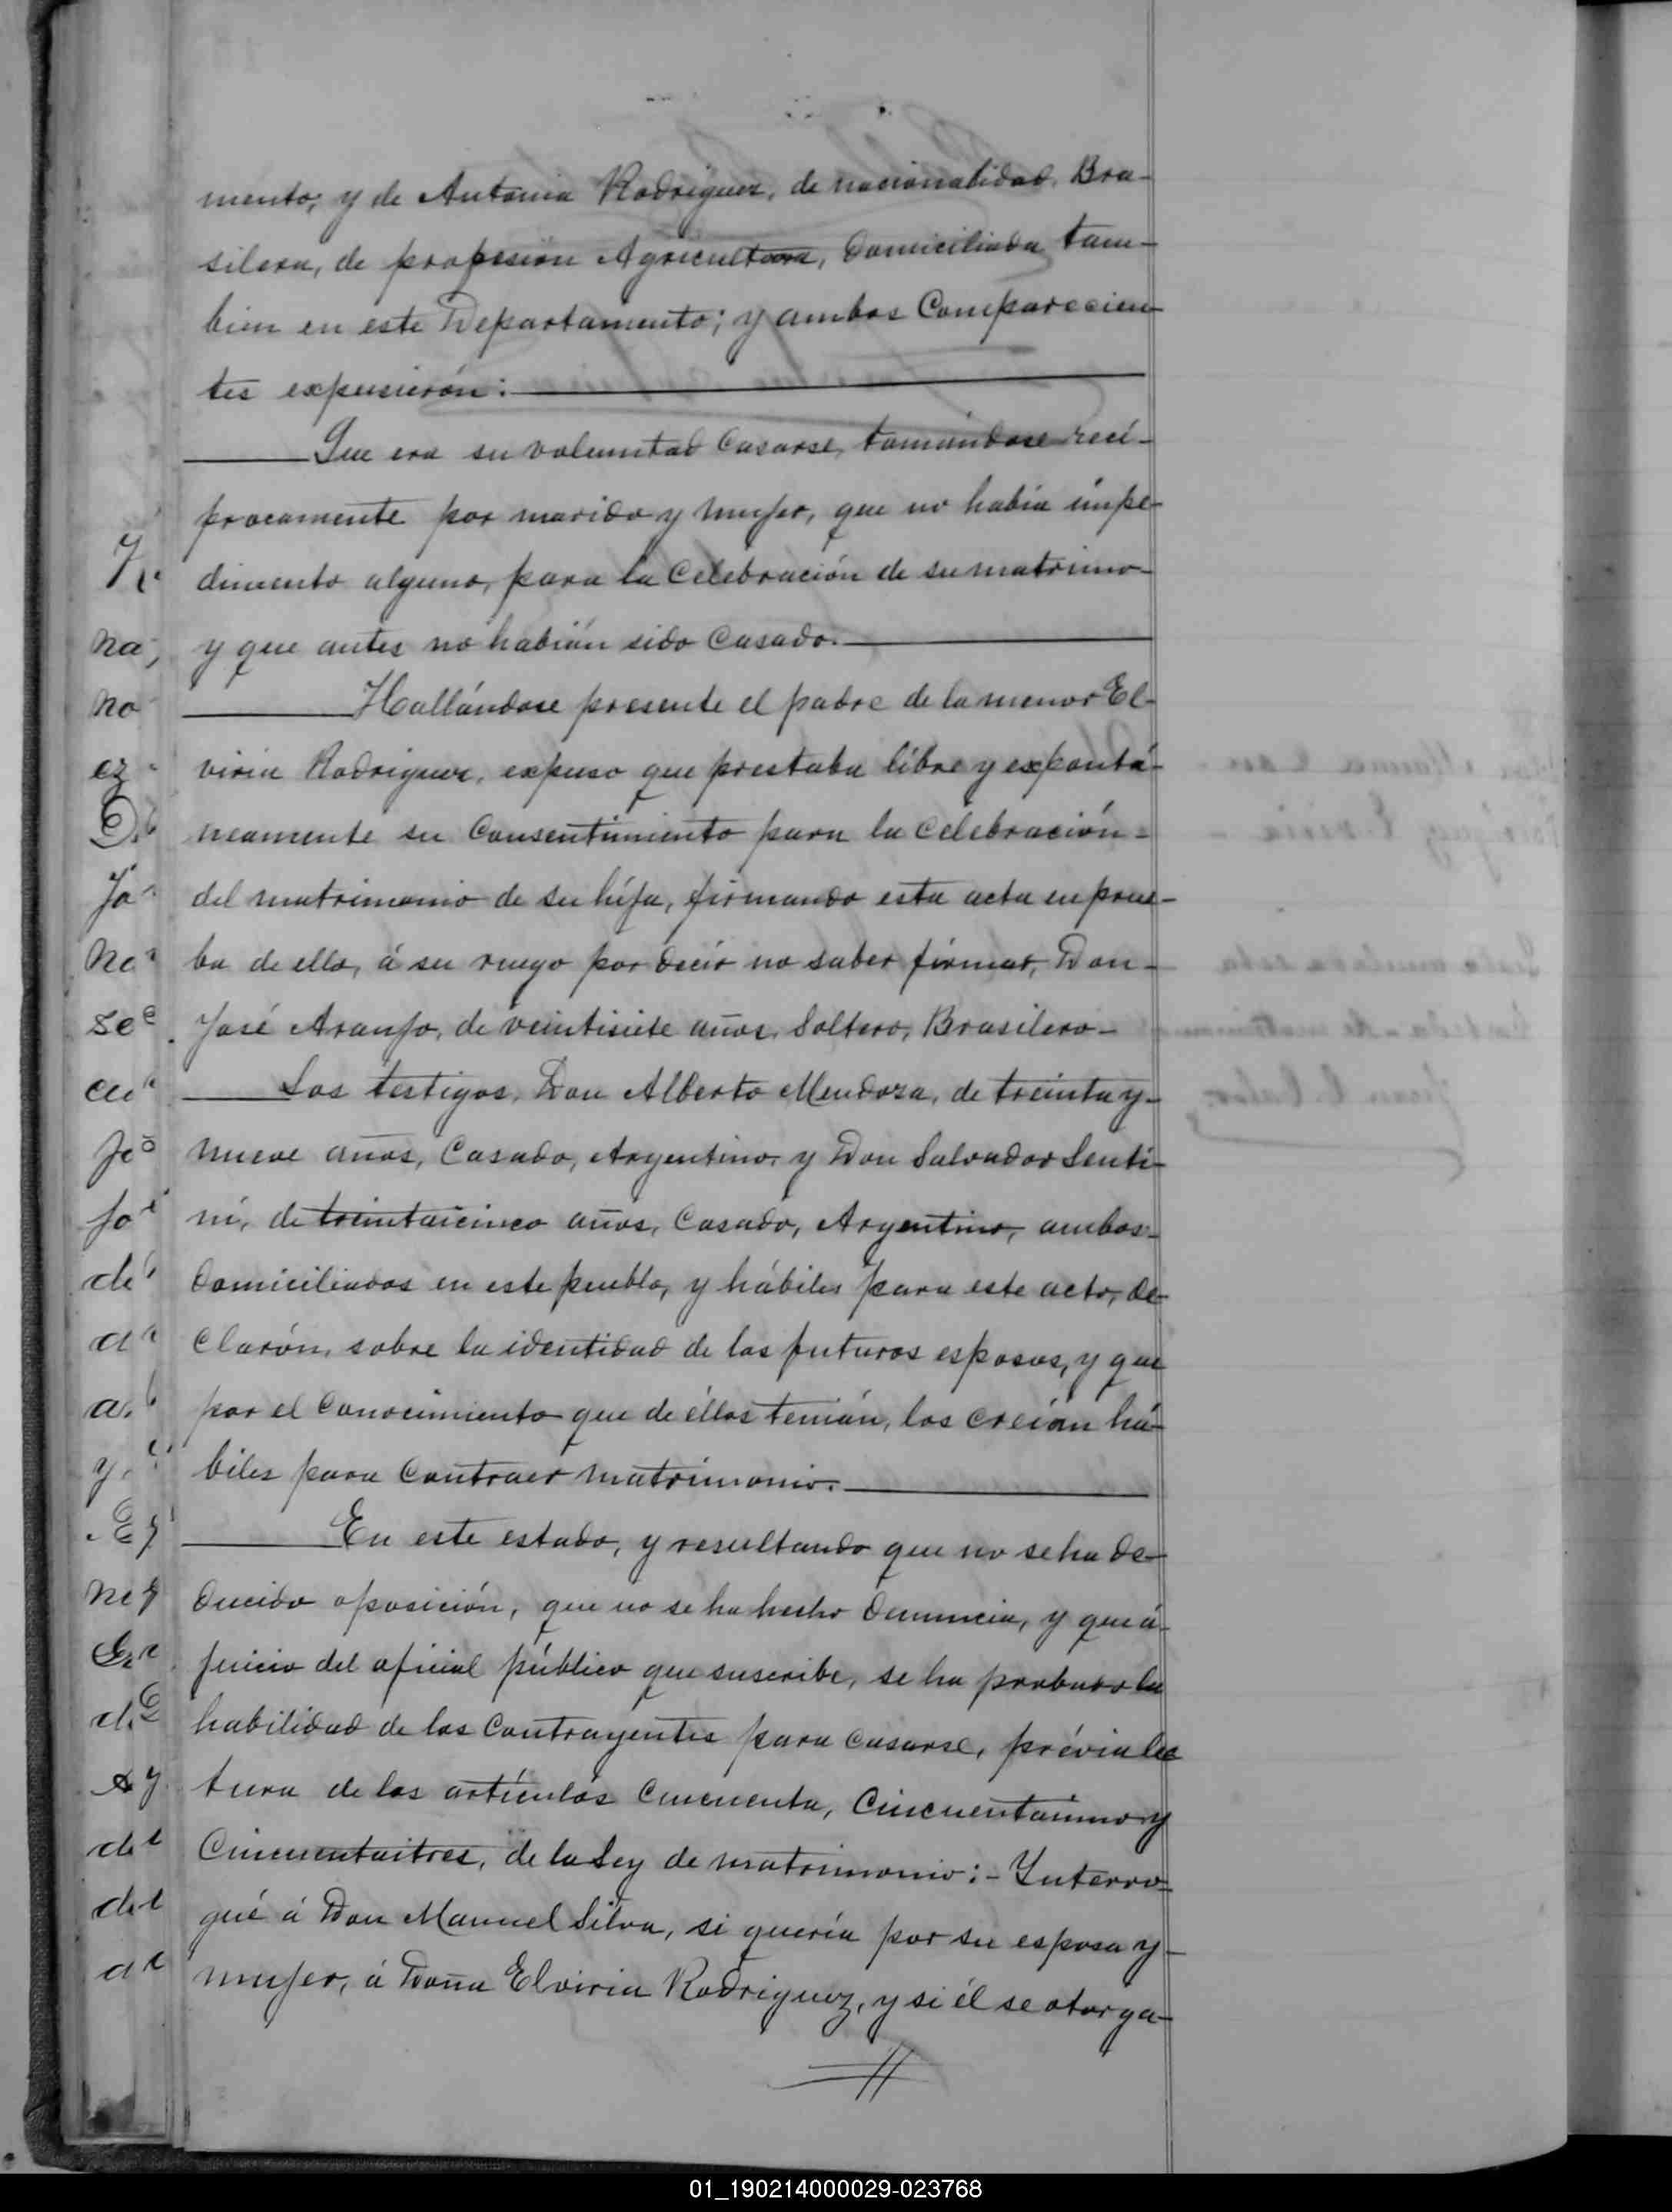 mento, y de Antonia Rodriguez, de nacionalidad, Bra-
silera, de profesión Agricultora, domiciliada tam-
bien en este Departamento; y ambos Comparecien-
tes expusierón:
Que era su voluntad Casarse, tomándose recí-
procamente por marido y mujer, que no había impe-
dimento alguno, para la Celebración de su matrimo-
y que antes no habían sido Casado.
Hallándose presente el padre de la menor El-
viria Rodriguez, expuso que prestaba libre y expontá-
neamente su Consentimiento para la Celebración-
del matrimonio de su hija, firmando esta acta en prue-
ba de ello, á su ruego por decir no saber firmar, Don-
José Araujo, de veintisiete años, Soltero, Brasilero-
Los testigos, Don Alberto Mendoza, de treinta y-
nueve años, Casado, Argentino, y Don Salvador Senti-
ni, de treintaicinco años, Casado, Argentino, ambos-
domiciliados en este pueblo, y hábiles para este acto, de-
clarón, sobre la identidad de los futuros esposos, y que
por el Conocimiento que de éllos tenián, los creían há-
biles para Contraer matrimonio.
En este estado, y resultando que no se ha de-
ducido oposición, que no se ha hecho denuncia, y que á-
juicio del oficial público que suscribe, se ha probado la
habilidad de los Contrayentes para Casarse, prévia lec
tura de los artículos Cincuenta, Cincuentaiuno y
Cincuentaitres, de la Ley de matrimonio:- Interro-
gué á Don Manuel Silva, si quería por su esposa y-
mujer, á Doña Elviria Rodriguez, y si él se otorga-
01_190214000029-023768